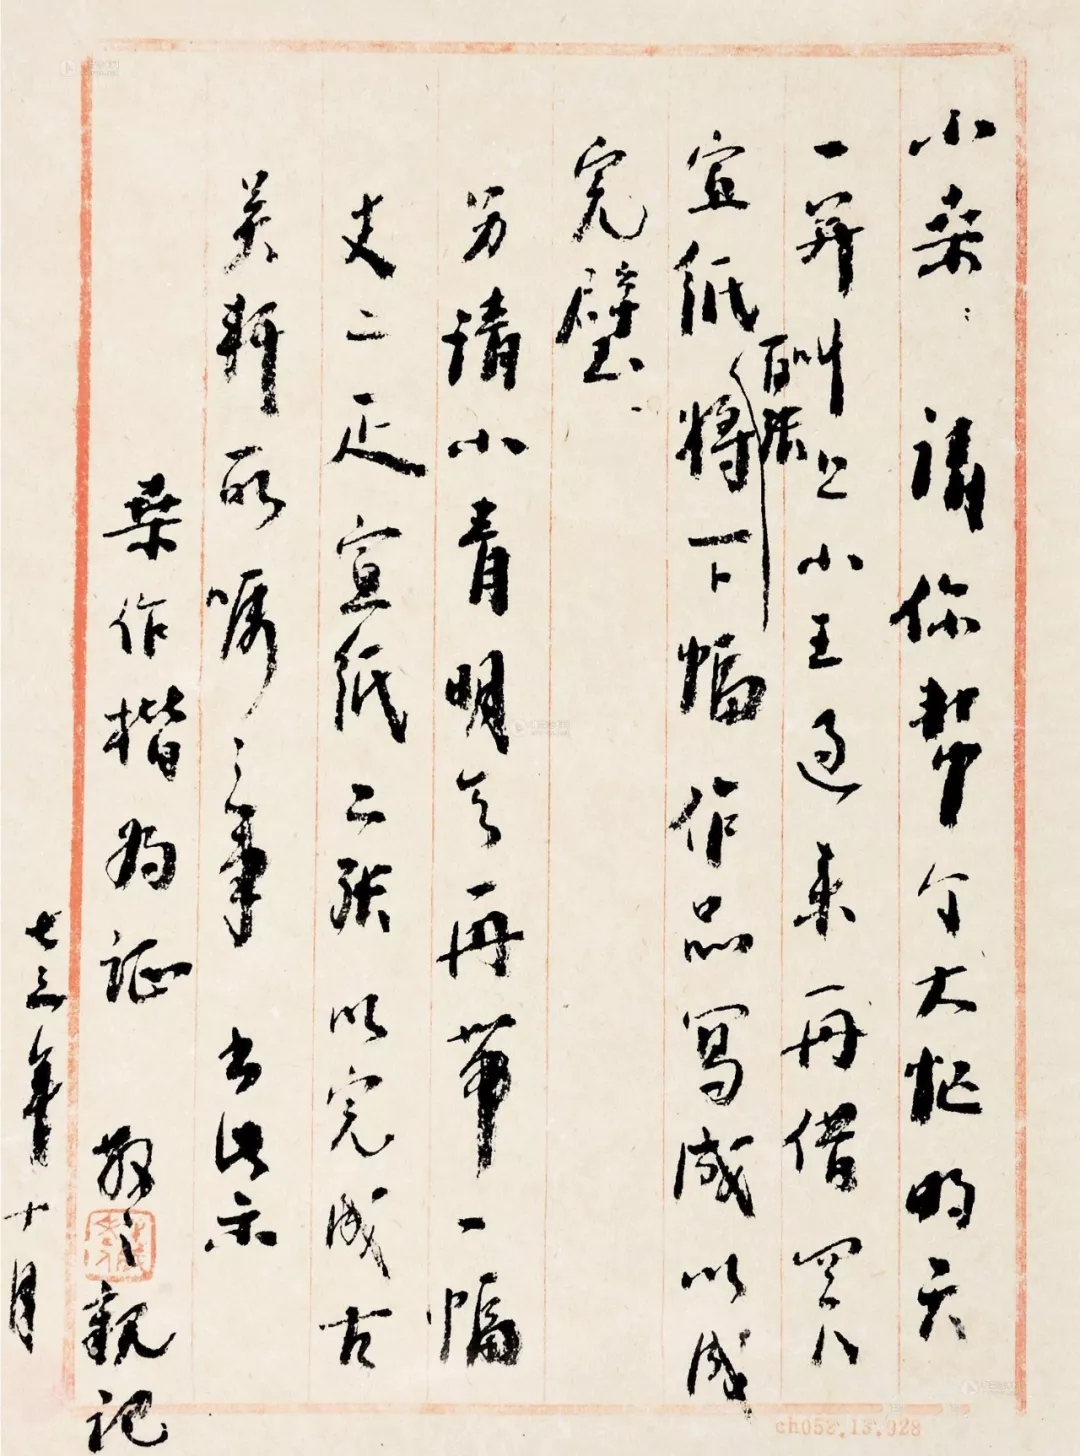 小桑：请你帮个大忙明天
一并叫上小王过来再借四尺
宣纸百张将下幅作品写成以成
完璧.
另请小青明天再带一幅
丈二疋宣纸二张以完成古
美轩所嘱之事 书此示
桑作楷为证 散之亲记
七三年十月
ch052.13.028